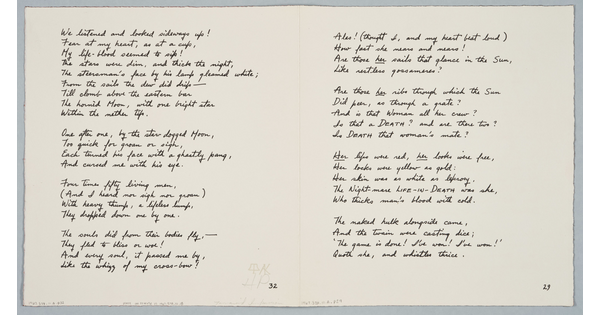 We listened and looked sideways up!
Fear at my heart, as at a cup,
My life-blood seemed to sip!
The stars were dim, and thick the night,
The steersman's face by his lamp gleamed white;
From the sails the dew did drip—
Till clomb above the eastern bar
The hornèd Moon, with one bright star
Within the nether tip.
One after one, by the star-dogged Moon,
Too quick for groan or sigh,
Each turned his face with a ghastly pang,
And cursed me with his eye.
Four times fifty living men,
(And I heard nor sigh nor groan)
With heavy thump, a lifeless lump,
They dropped down one by one.
The souls did from their bodies fly,—
They fled to bliss or woe!
And every soul, it passed me by,
Like the whizz of my cross-bow!
32
Alas! (thought I, and my heart beat loud)
How fast she nears and nears!
Are those her sails that glance in the Sun,
Like restless gossameres?
Are those her ribs through which the Sun
Did peer, as through a grate?
And is that Woman all her crew?
Is that a DEATH? and are there two?
Is DEATH that woman's mate?
Her lips were red, her looks were free,
Her locks were yellow as gold:
Her skin was as white as leprosy,
The Night-mare LIFE-IN-DEATH was she,
Who thicks man's blood with cold.
The naked hulk alongside came,
And the twain were casting dice;
'The game is done! I've won! I've won!'
Quoth she, and whistles thrice.
29